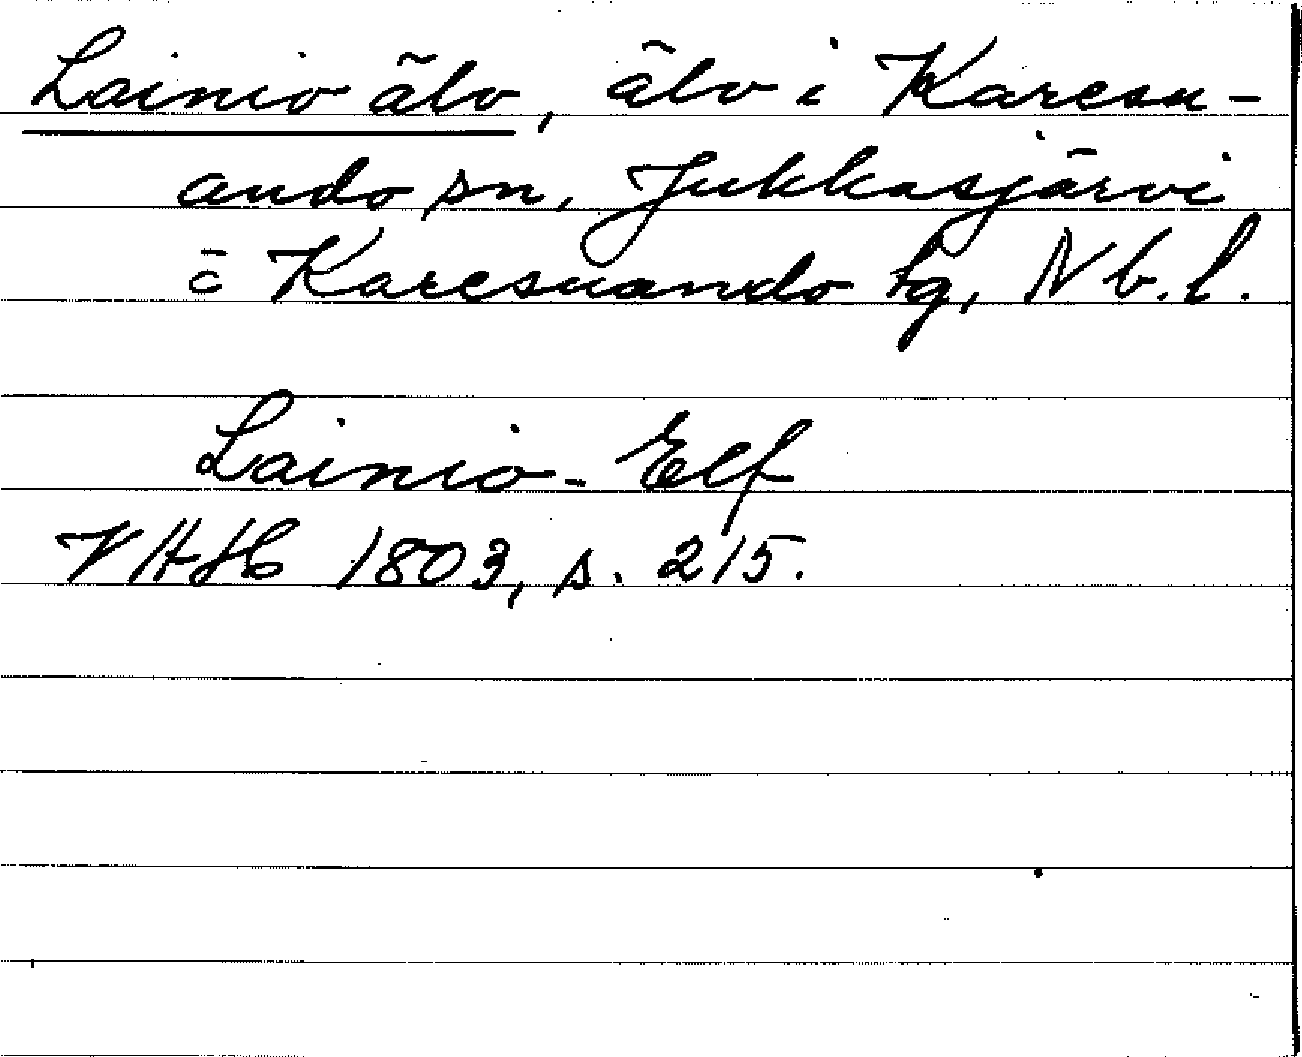 Lainio älv, älv i Karesu-
ando sn, Jukkasjärvi
o Karesuando tg, Nb. l.
Lainio-Elf
VHAH 1803, s. 215.